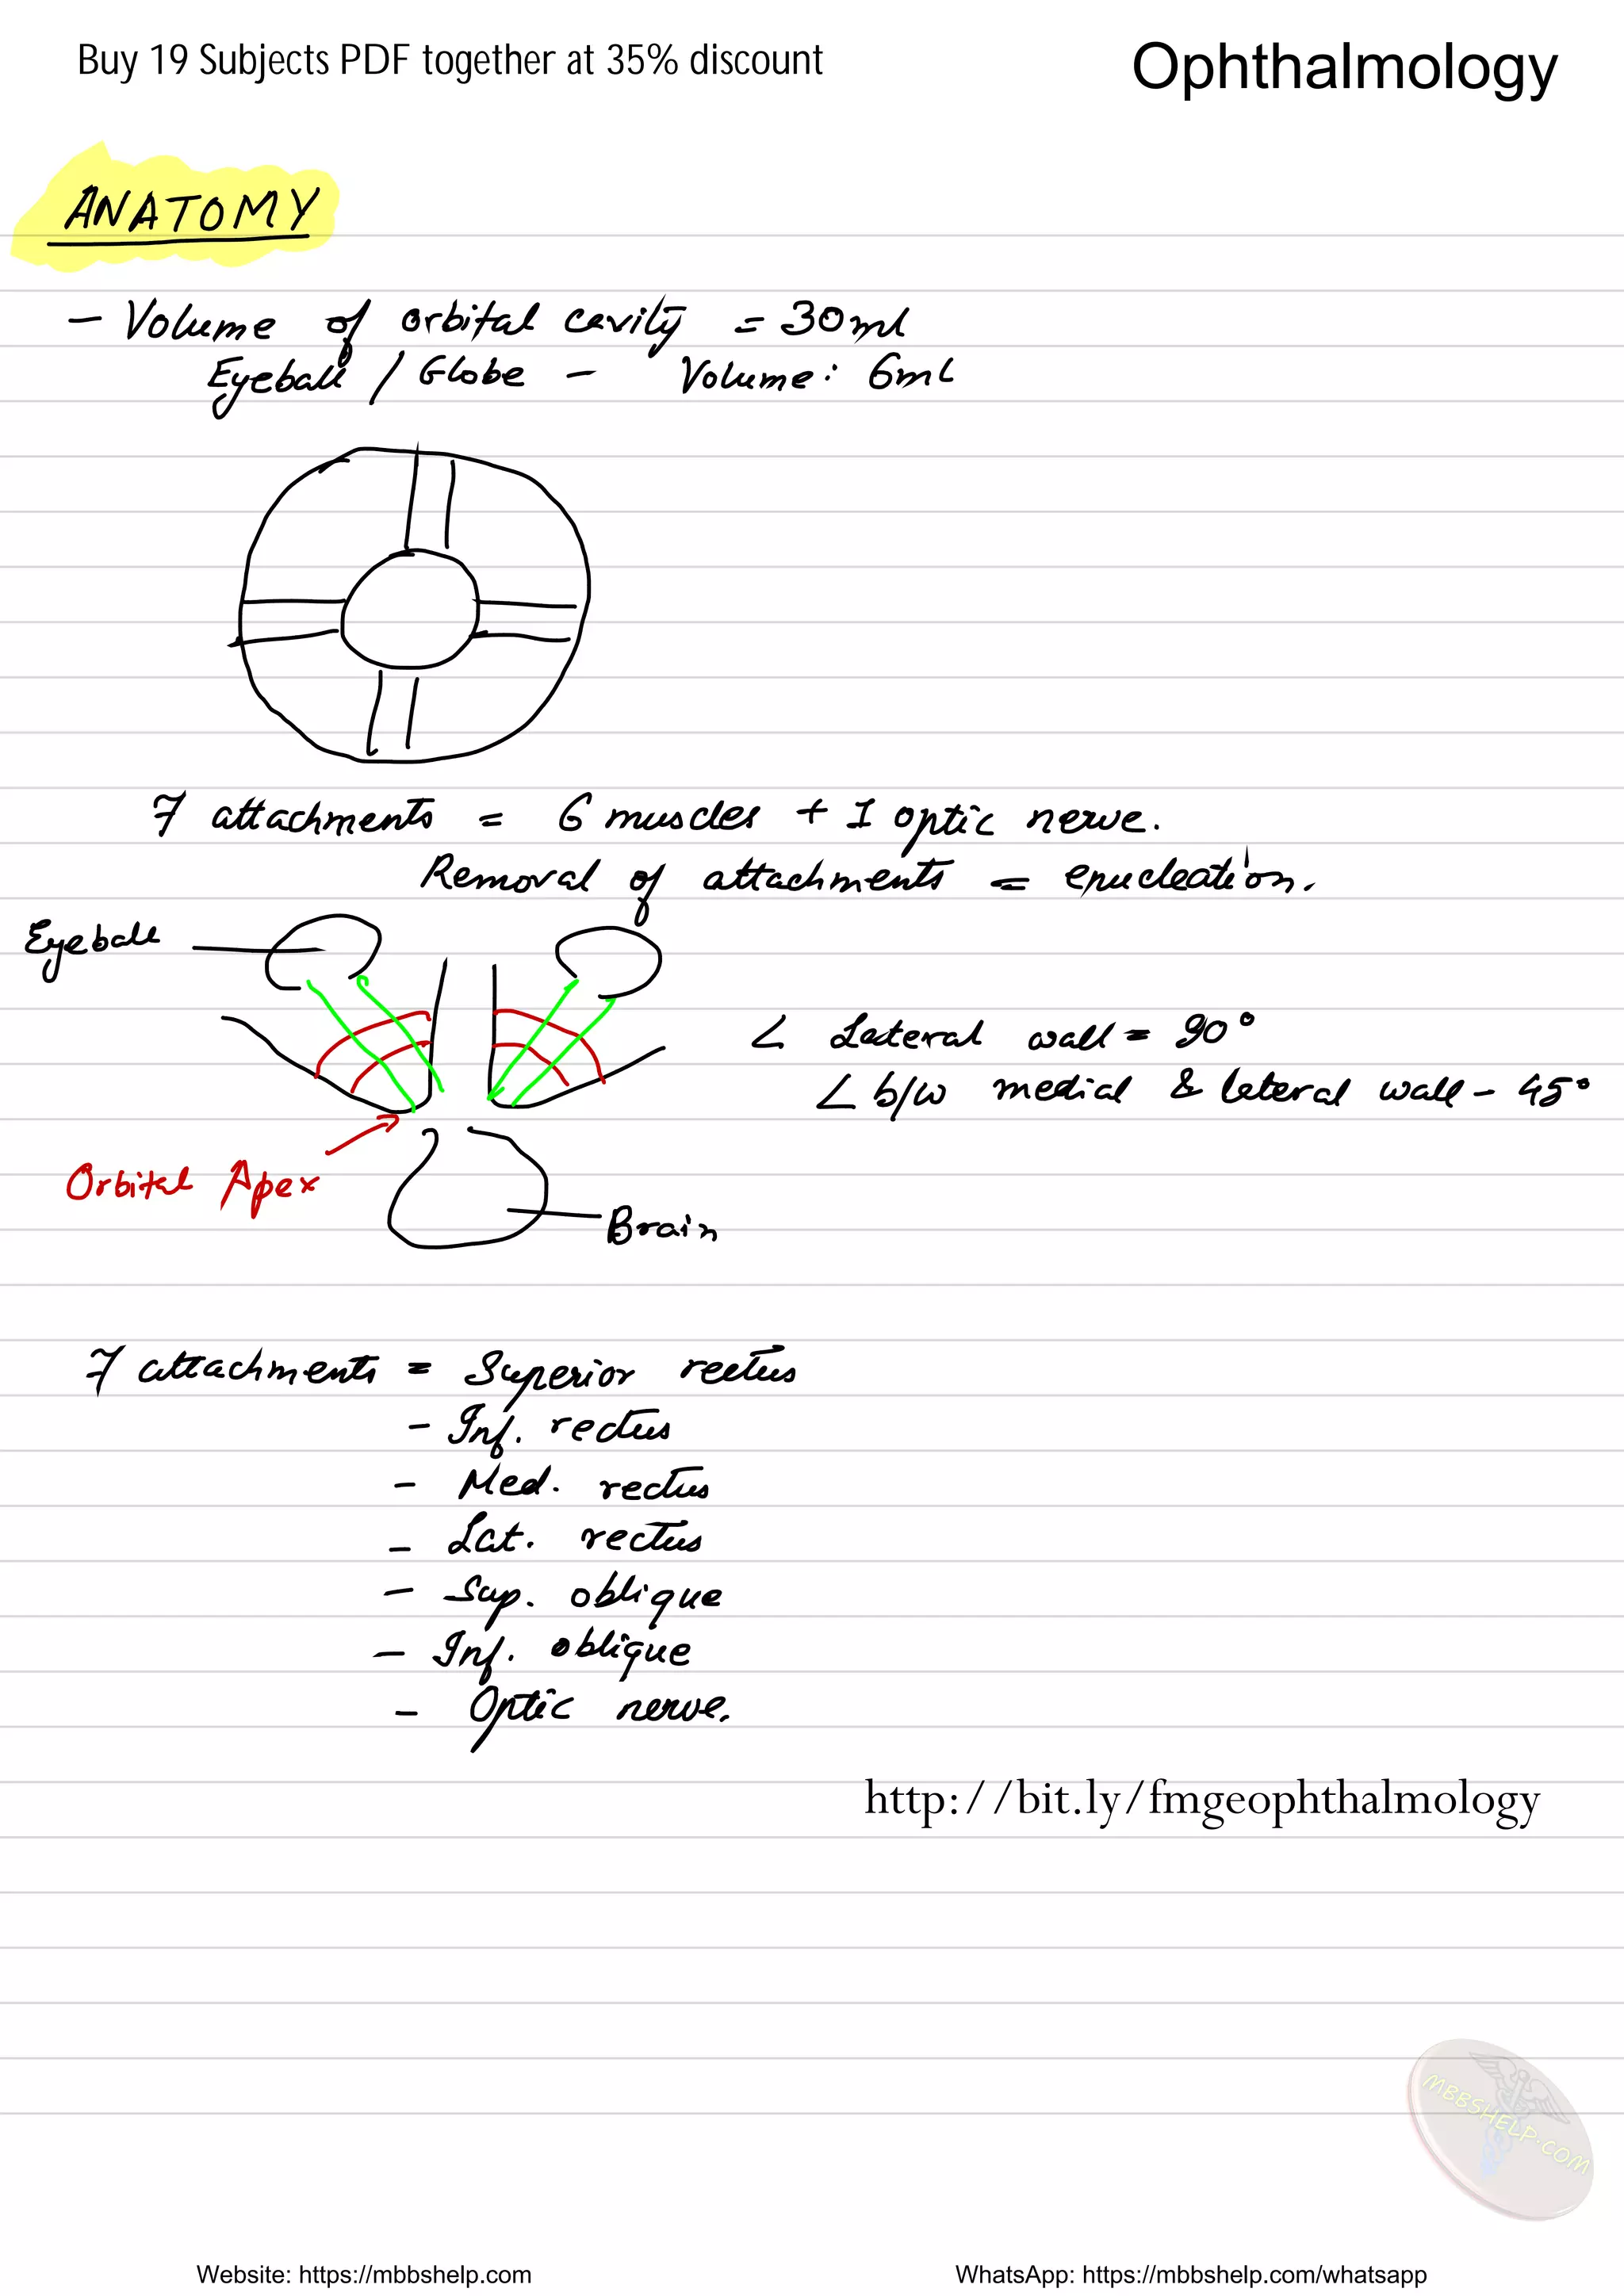 Buy 19 Subjects PDF together at 35% discount
Ophthalmology
ANATOMY
- Volume of orbital cavity = 30ml
Eyeball / Globe - Volume: 6ml
7 attachments = 6 muscles + 1 optic nerve.
Removal of attachments = enucleation.
Eyeball
∠ Lateral wall = 90°
∠ b/w medial & lateral wall - 45°
Orbital Apex
Brain
7 attachments = Superior rectus
- Inf. rectus
- Med. rectus
- Lat. rectus
- Sup. oblique
- Inf. oblique
- Optic nerve.
http://bit.ly/fmgeophthalmology
MBBSHELP.COM
Website: https://mbbshelp.com
WhatsApp: https://mbbshelp.com/whatsapp